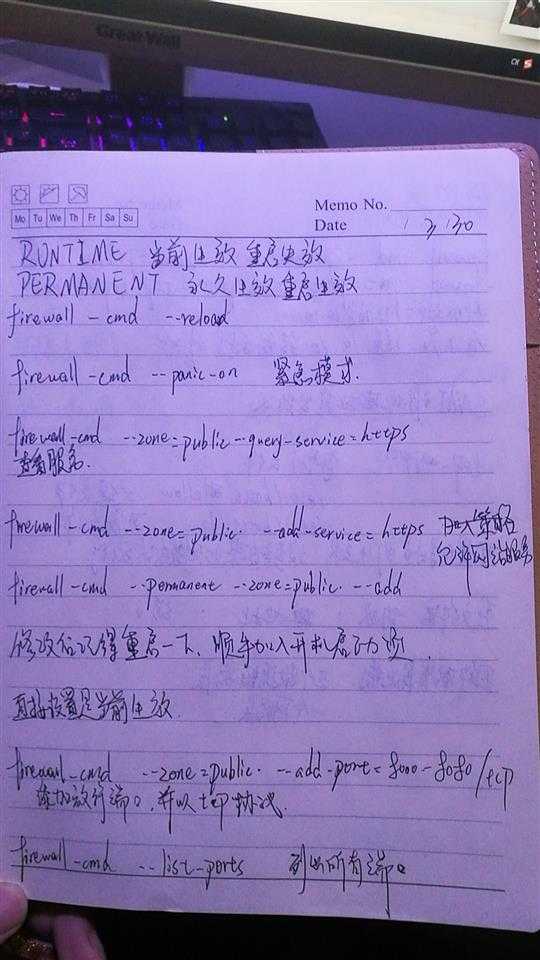 Great Wall
Memo No.
Mo Tu We Th Fr Sa Su
Date
RUNTIME 当前生效 重启失效
PERMANENT 永久生效 重启生效
firewall-cmd --reload
firewall-cmd --panic-on 紧急模式.
firewall-cmd --zone=public --query-service=https
查看服务.
firewall-cmd --zone=public --add-service=https 加入策略
允许网站服务
firewall-cmd --permanent --zone=public --add
修改后记得重启一下、顺手加入开机启动项
直接设置是当前生效.
firewall-cmd --zone=public --add-port=8000-8080/tcp
添加放行端口,并以tcp协议.
firewall-cmd --list-ports 列出所有端口